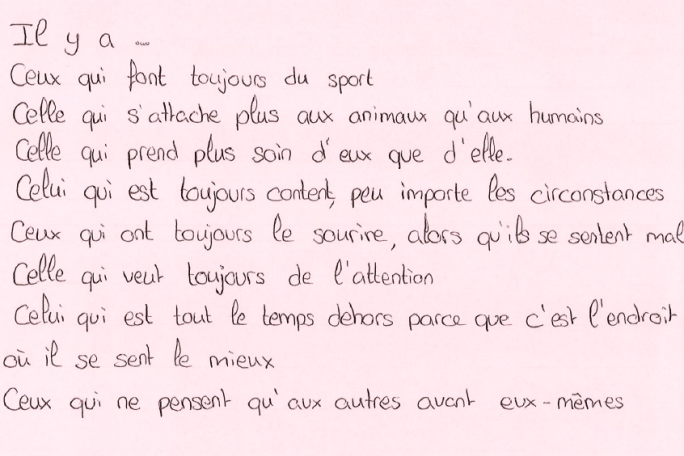 Il y a ...
Ceux qui font toujours du sport
Celle qui s'attache plus aux animaux qu'aux humains
Celle qui prend plus soin d'eux que d'elle.
Celui qui est toujours content, peu importe les circonstances
Ceux qui ont toujours le sourire, alors qu'ils se sentent mal
Celle qui veut toujours de l'attention
Celui qui est tout le temps dehors parce que c'est l'endroit
où il se sent le mieux
Ceux qui ne pensent qu'aux autres avant eux-mêmes